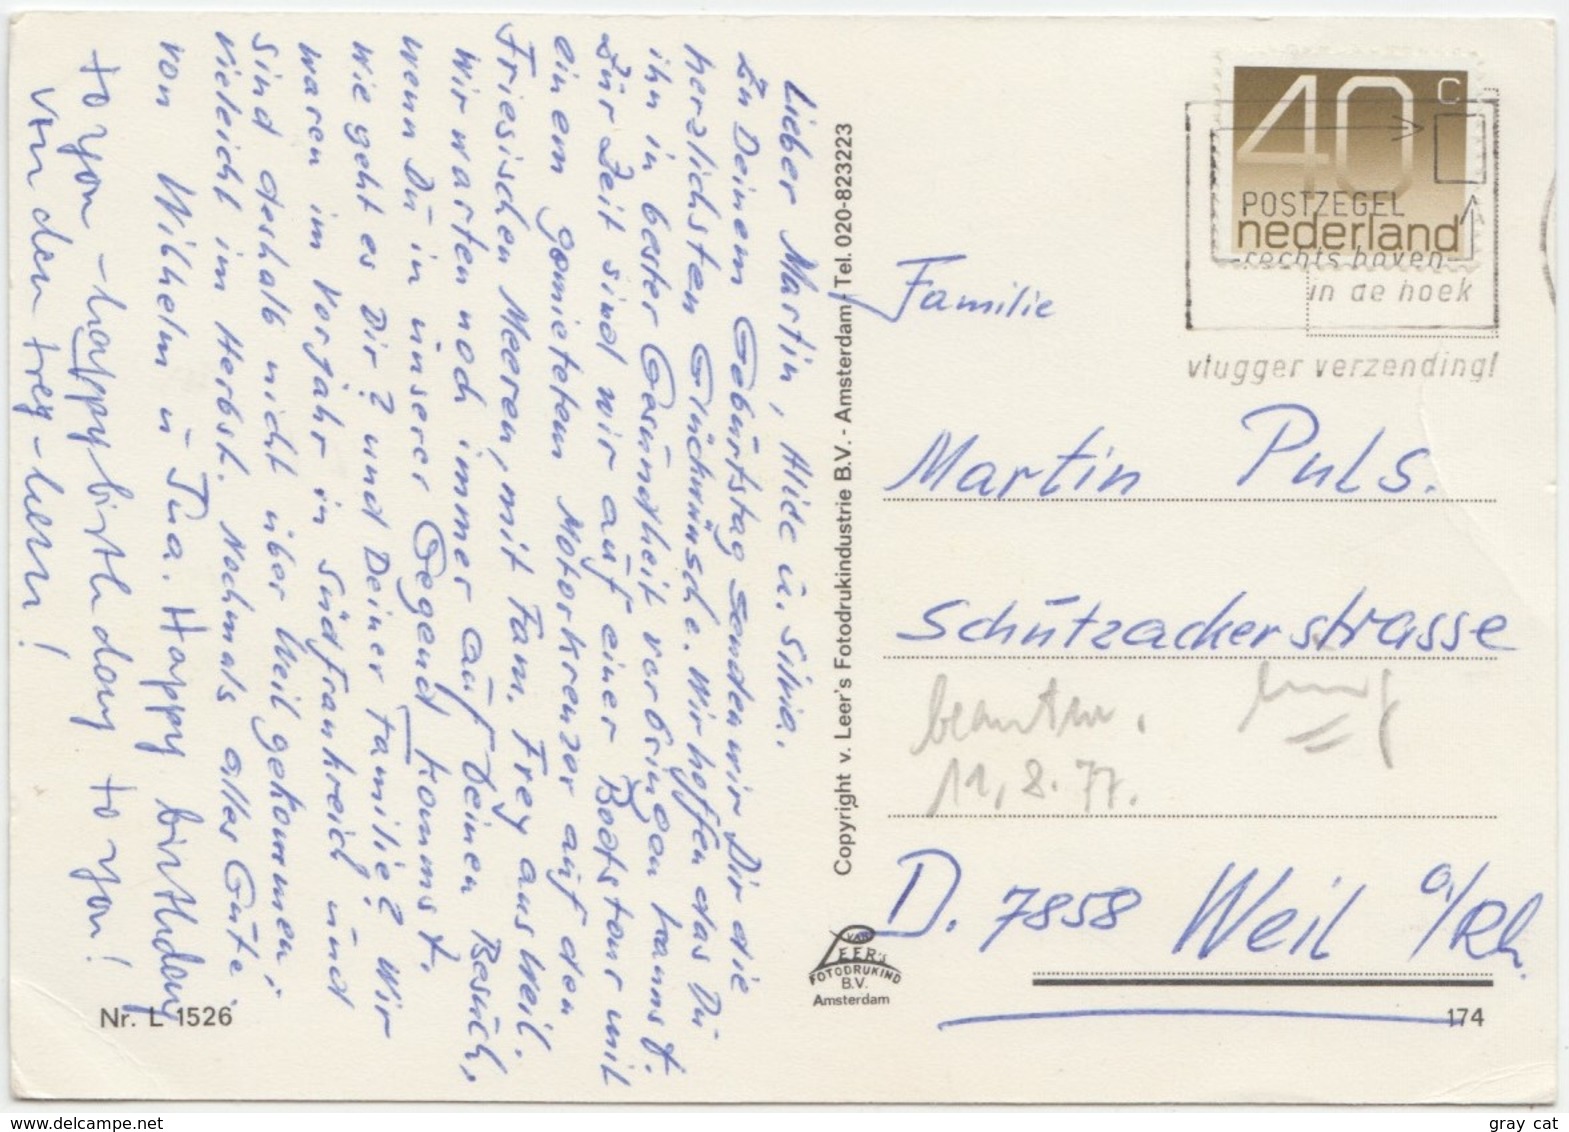 Lieber Martin, Hilde u. Silvia.
Zu Deinem Geburtstag senden wir Dir die
herzlichsten Glückwünsche. Wir hoffen das Du
ihn in bester Gesundheit verbringen kannst.
Zur Zeit sind wir auf einer Bootstour mit
einem gemieteten Motorkreuzer auf den
Friesischen Meeren, mit Fam. Frey aus Weil.
Wir warten noch immer auf Deinen Besuch,
wenn Du in unserer Gegend kommst.
Wie geht es Dir? und Deiner Familie? Wir
waren im Vorjahr in Südfrankreich und
sind deshalb nicht über Weil gekommen,
vieleicht im Herbst. Nochmals alles Gute
von Wilhelm u Jna. Happy birthday
to you - happy birthday to you!
von den Frey-lern!
Nr. L 1526
Copyright v. Leer's Fotodrukindustrie B.V. - Amsterdam - Tel. 020-823223
VAN
LEER's
FOTODRUKIND
B.V.
Amsterdam
40 c
nederland
POSTZEGEL
rechts boven
in de hoek
vlugger verzending!
Familie
Martin Puls.
Schützackerstrasse
beantw.
11.8.77.
D. 7858 Weil a/Rh.
174
www.delcampe.net
gray cat